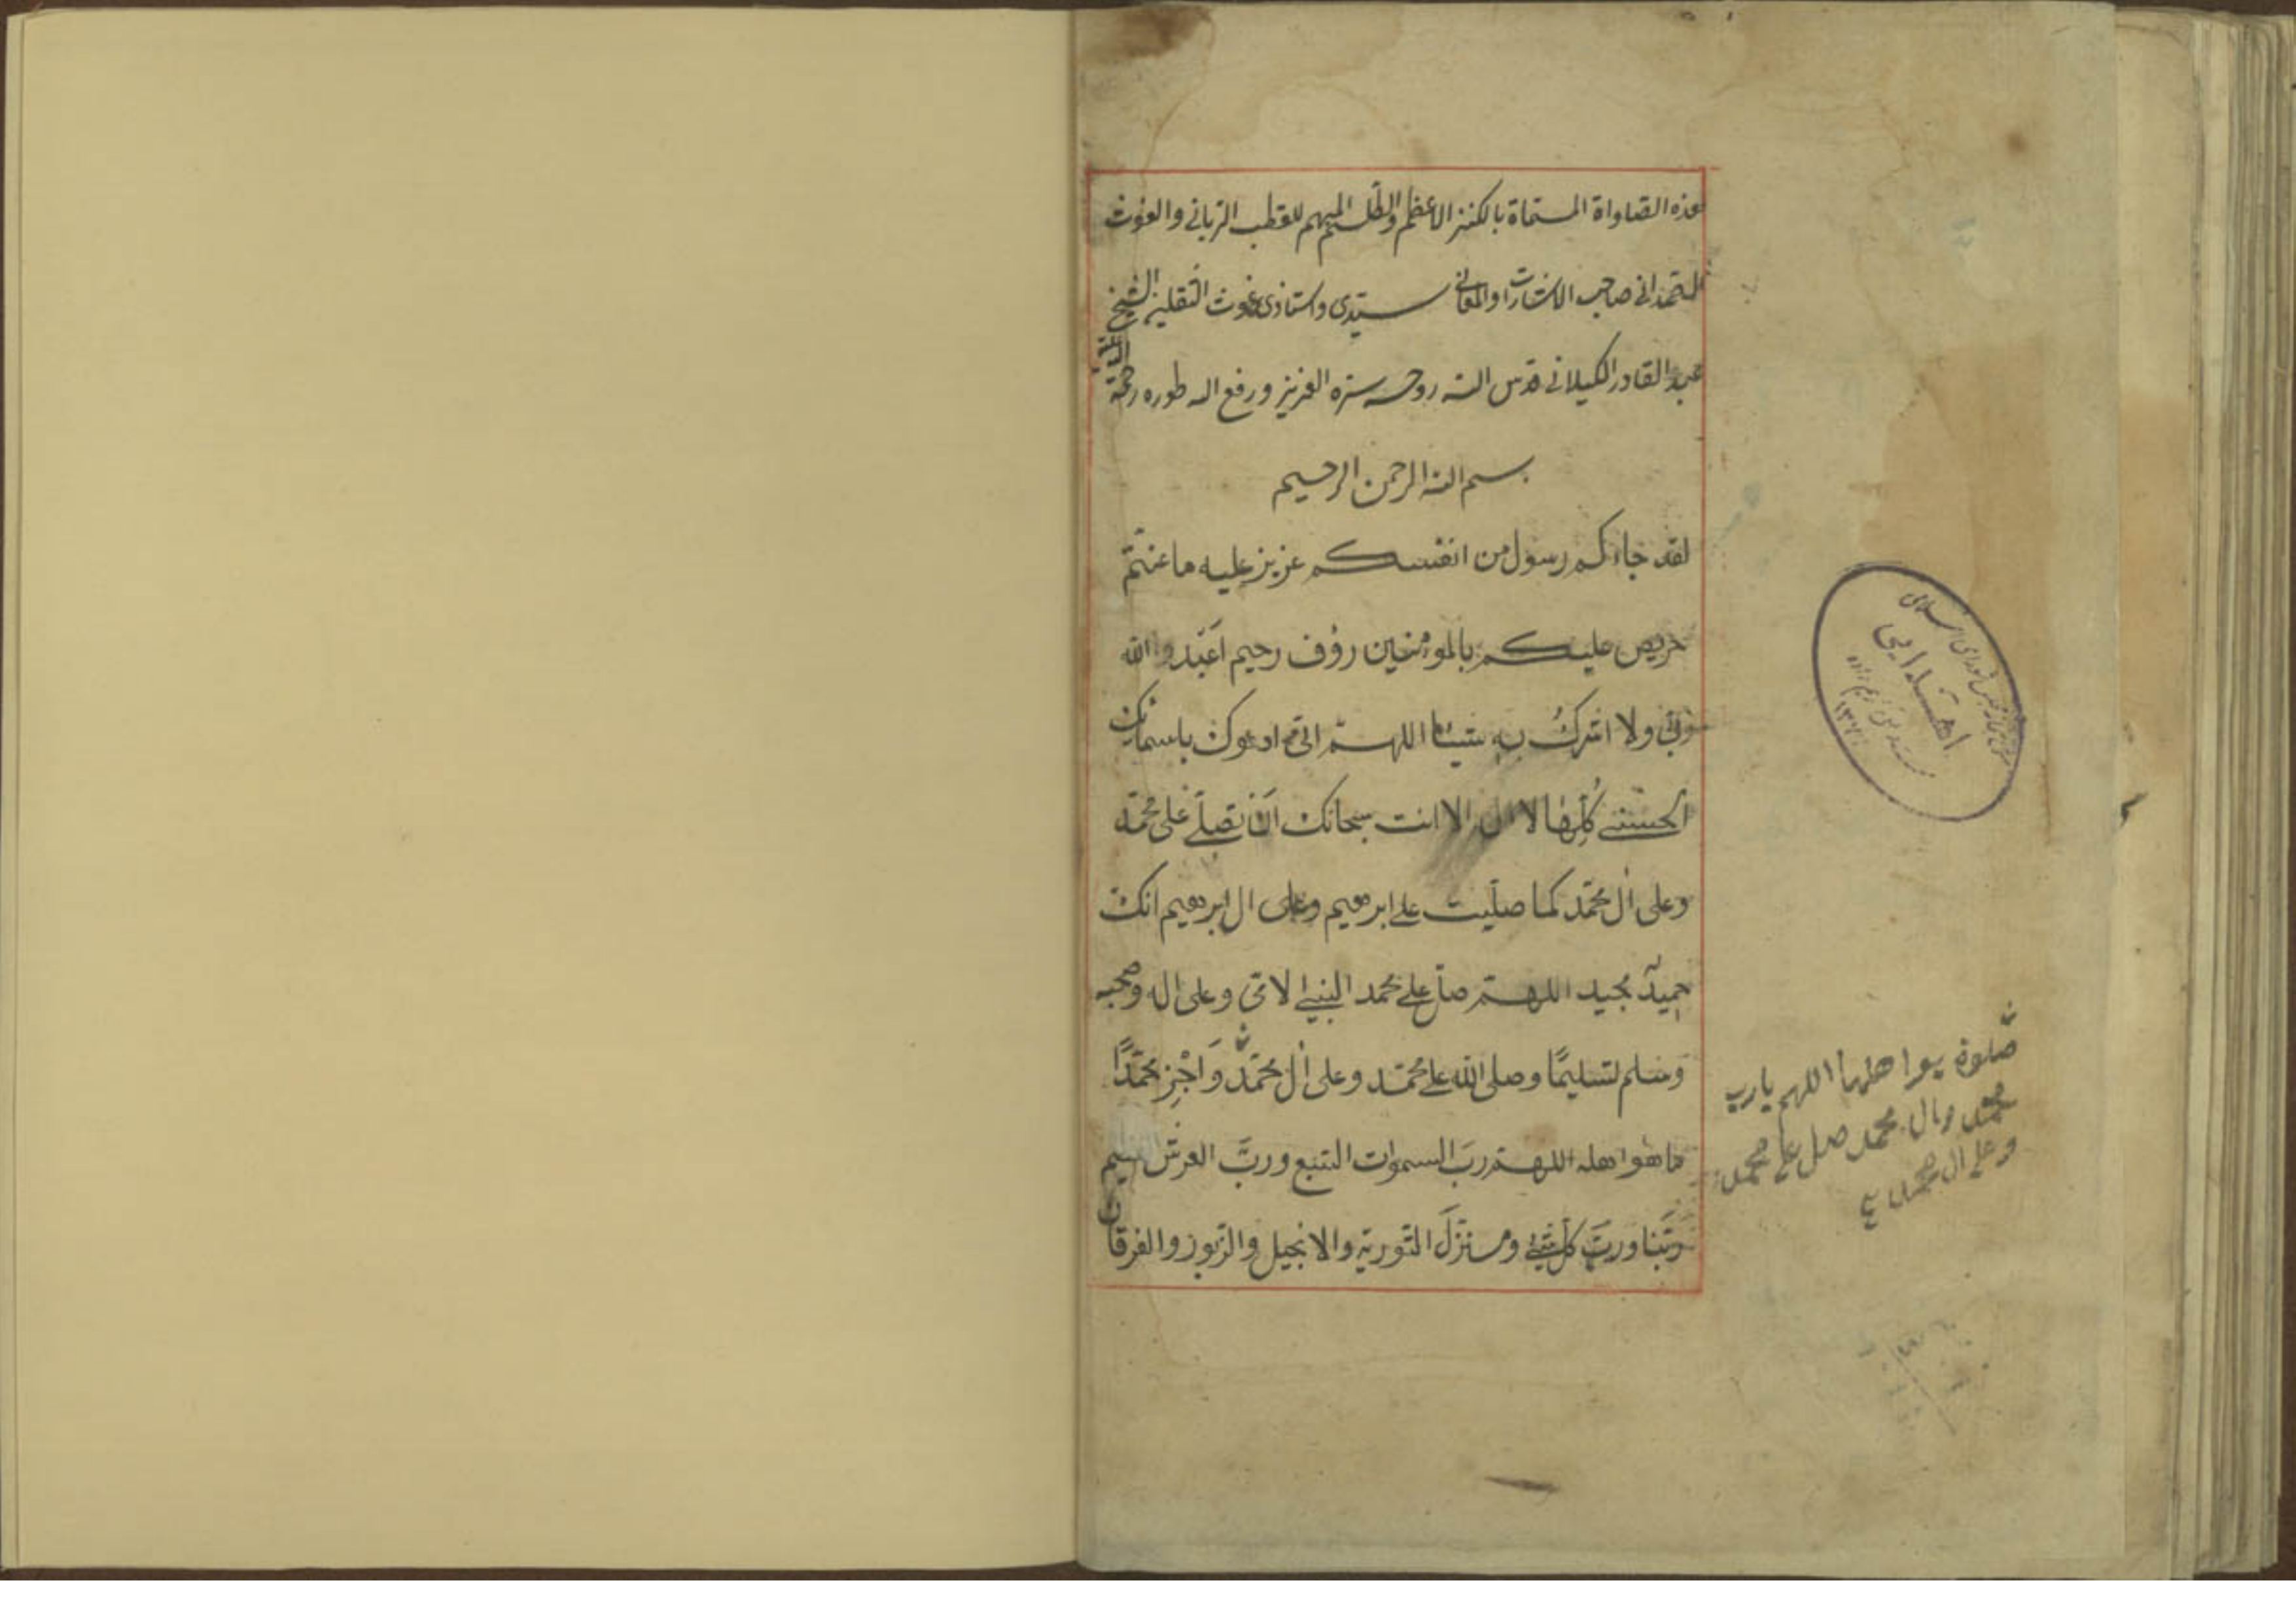 هذه الصلواة المسماة بالكنز الاعظم والطلسم المبهم للقطب الرباني والغوث
الصمداني صاحب الاشارات والمعاني سيدى واستاذى غوث الثقلين الشيخ
عبد القادر الكيلاني قدس الله روحه سره العزيز ورفع الله طوره رحمة الله عليه
بسم الله الرحمن الرحيم
لقد جاءكم رسول من انفسكم عزيز عليه ما عنتم
حريص عليكم بالمومنين رؤف رحيم اعبدوا الله
ربي ولا اشرك به شيئا اللهم اني ادعوك باسمائك
الحسنى كلها لا اله الا انت سبحانك ان تصلي على محمد
وعلى ال محمد كما صليت على ابرهيم وعلى ال ابرهيم انك
حميد مجيد اللهم صل على محمد النبي الامي وعلى اله وصحبه
وسلم تسليما وصلى الله على محمد وعلى ال محمد وَاجْزِ محمدًا
ما هو اهله اللهم ربَ السموات السبع وربَّ العرش
ربَّنا وربَّ كل شئ ومنزلَ التورية والانجيل والزبور والفرقان
اهدايى
صلوة هو اهلها اللهم يا رب
محمد وال محمد صل على محمد
وعلى ال محمد